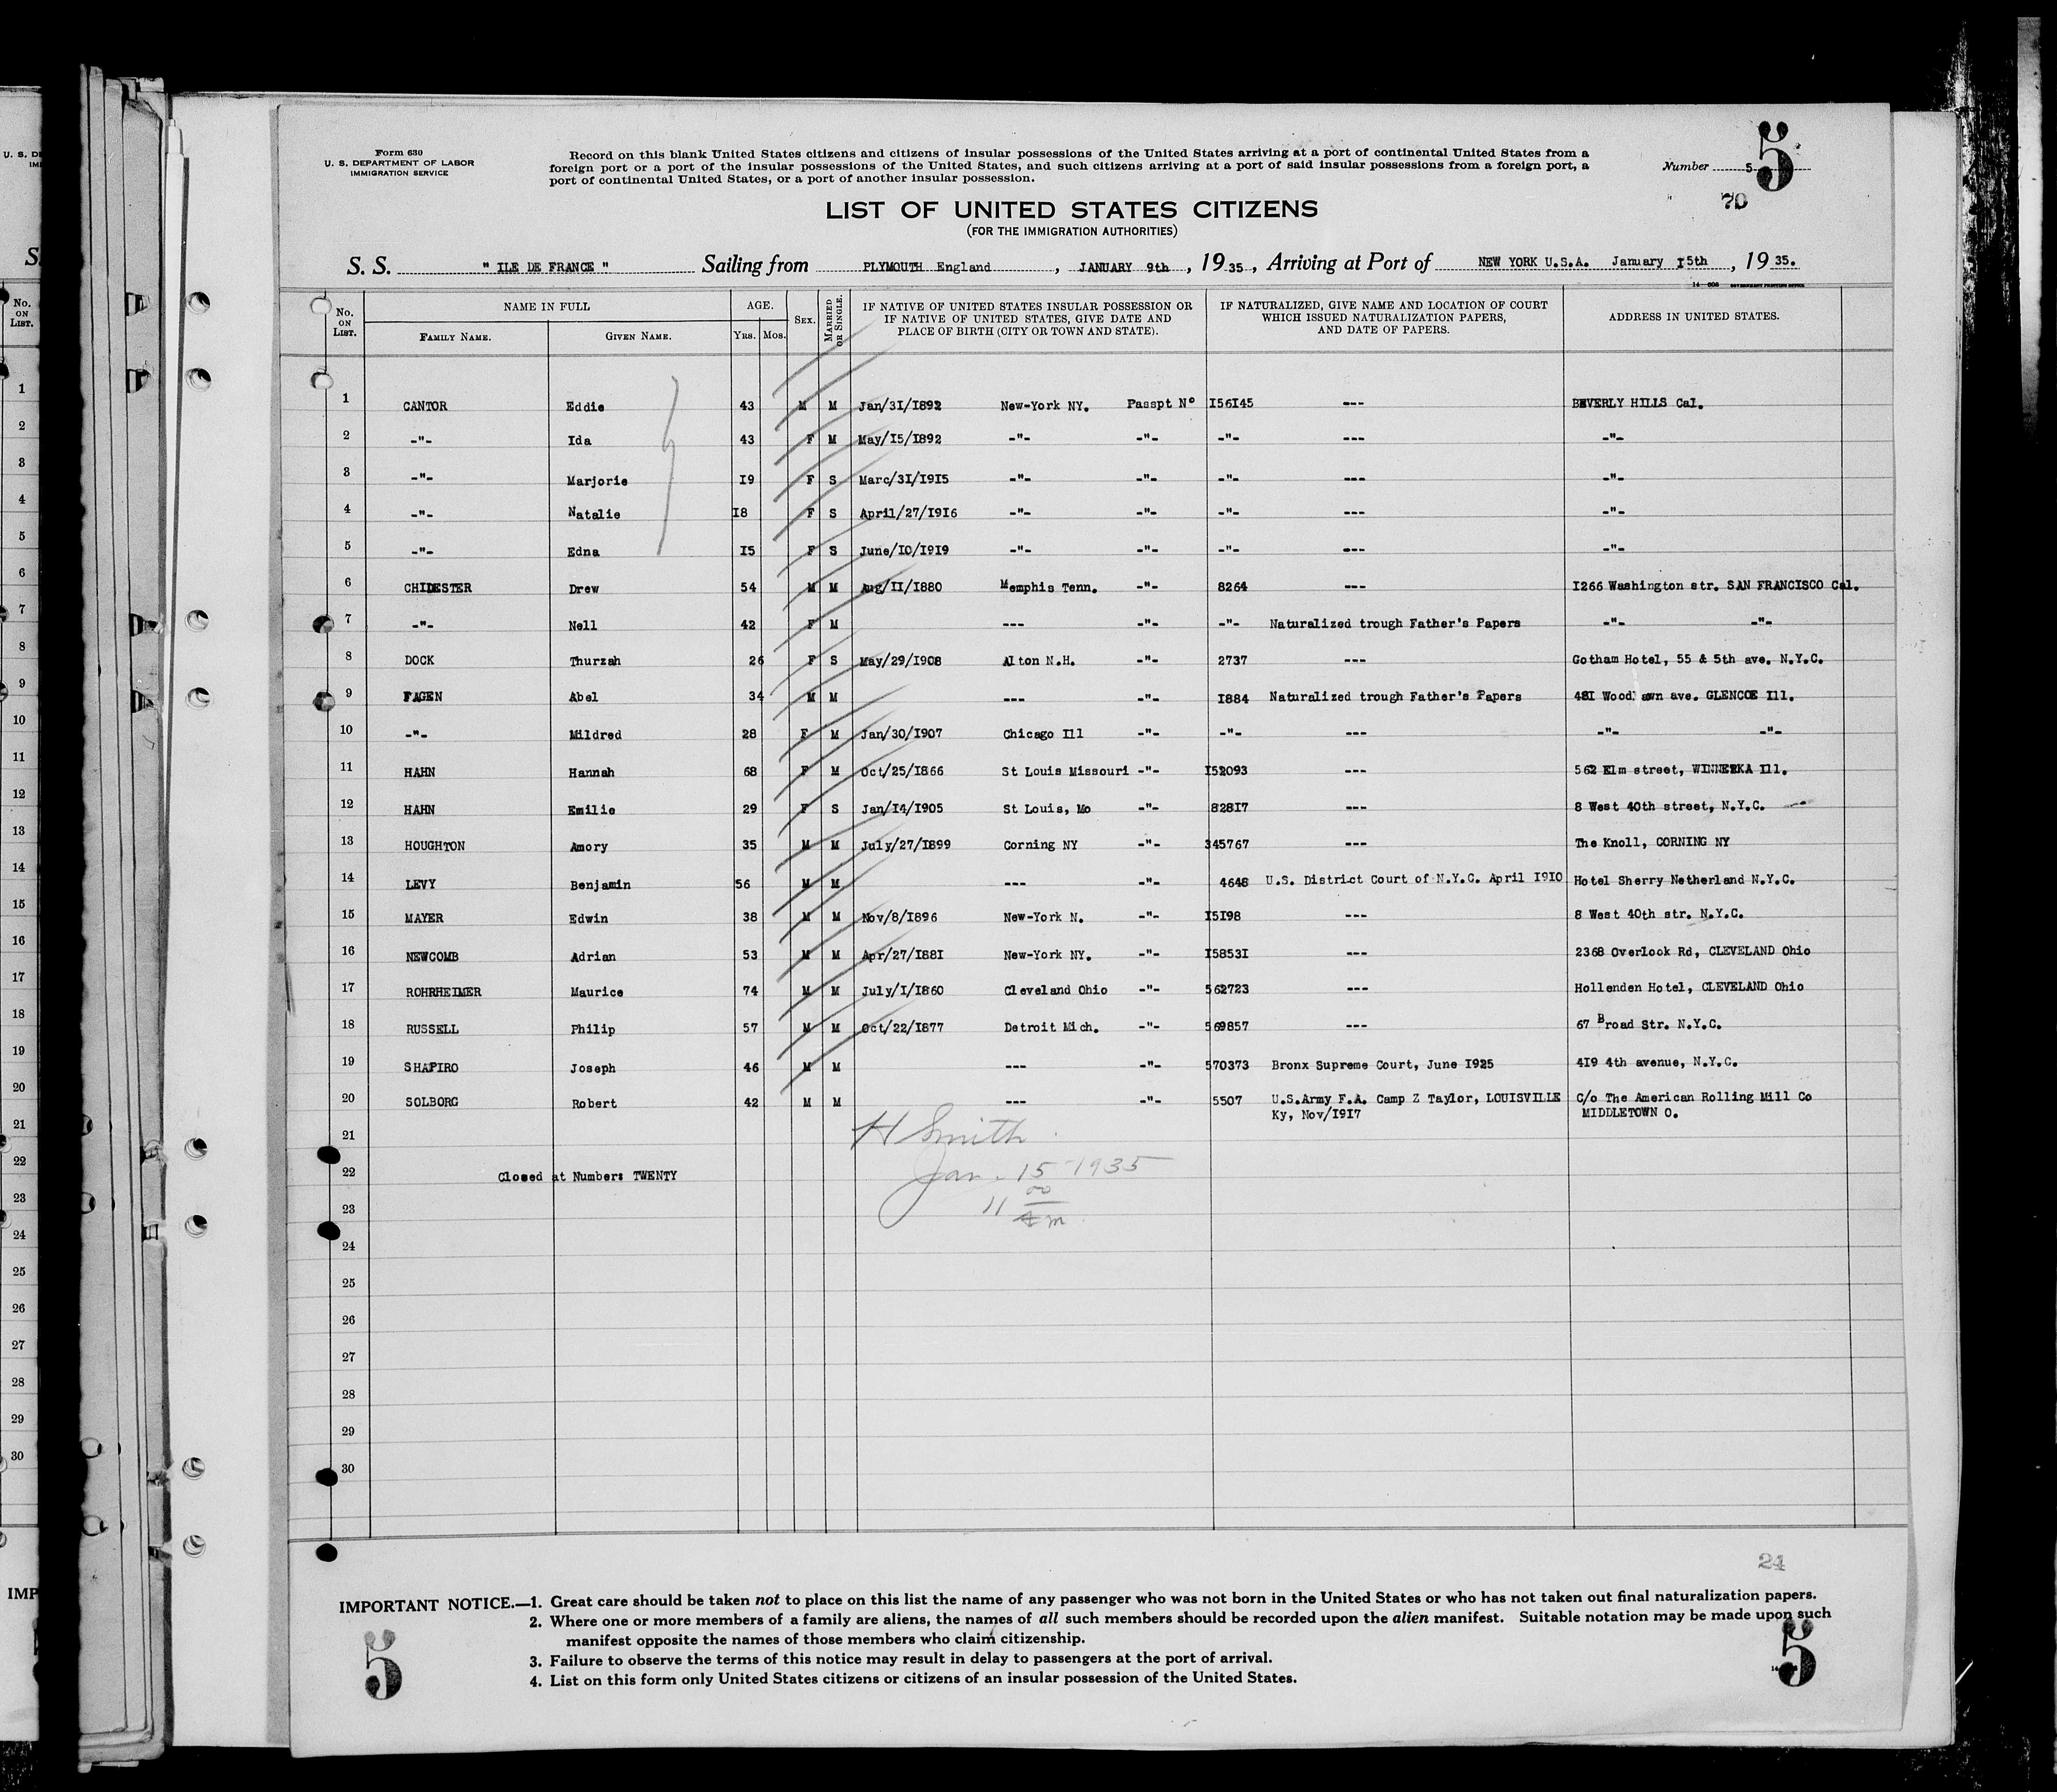 Form 630
U. S. DEPARTMENT OF LABOR
IMMIGRATION SERVICE
Record on this blank United States citizens and citizens of insular possessions of the United States arriving at a port of continental United States from a
foreign port or a port of the insular possessions of the United States, and such citizens arriving at a port of said insular possessions from a foreign port, a
port of continental United States, or a port of another insular possession.
Number 5 5
70
LIST OF UNITED STATES CITIZENS
(FOR THE IMMIGRATION AUTHORITIES)
S. S. " ILE DE FRANCE " Sailing from PLYMOUTH England, JANUARY 9th, 1935, Arriving at Port of NEW YORK U.S.A. January I5th, 1935.
No. ON LIST. NAME IN FULL FAMILY NAME. GIVEN NAME. AGE. YRS. MOS. SEX. MARRIED OR SINGLE. IF NATIVE OF UNITED STATES INSULAR POSSESSION OR IF NATIVE OF UNITED STATES, GIVE DATE AND PLACE OF BIRTH (CITY OR TOWN AND STATE). IF NATURALIZED, GIVE NAME AND LOCATION OF COURT WHICH ISSUED NATURALIZATION PAPERS, AND DATE OF PAPERS. ADDRESS IN UNITED STATES.
1 CANTOR Eddie 43 M M Jan/3I/I892 New-York NY. Passpt Nº I56I45 --- BEVERLY HILLS Cal.
2 -"- Ida 43 F M May/I5/I892 -"- -"- -"- --- -"-
3 -"- Marjorie I9 F S Marc/3I/I9I5 -"- -"- -"- --- -"-
4 -"- Natalie I8 F S April/27/I9I6 -"- -"- -"- --- -"-
5 -"- Edna I5 F S June/IO/I9I9 -"- -"- -"- --- -"-
6 CHIDESTER Drew 54 M M Aug/II/I880 Memphis Tenn. -"- 8264 --- I266 Washington str. SAN FRANCISCO Cal.
7 -"- Nell 42 F M --- -"- -"- Naturalized trough Father's Papers -"- -"-
8 DOCK Thurzah 26 F S May/29/I908 Alton N.H. -"- 2737 --- Gotham Hotel, 55 & 5th ave. N.Y.C.
9 FAGEN Abel 34 M M --- -"- I884 Naturalized trough Father's Papers 48I Woodlawn ave. GLENCOE Ill.
10 -"- Mildred 28 F M Jan/30/I907 Chicago Ill -"- -"- --- -"- -"-
11 HAHN Hannah 68 F M Oct/25/I866 St Louis Missouri -"- I52093 --- 562 Elm street, WINNETKA Ill.
12 HAHN Emilie 29 F S Jan/I4/I905 St Louis, Mo -"- 828I7 --- 8 West 40th street, N.Y.C.
13 HOUGHTON Amory 35 M M July/27/I899 Corning NY -"- 345767 --- The Knoll, CORNING NY
14 LEVY Benjamin 56 M M --- -"- 4648 U.S. District Court of N.Y.C. April I9I0 Hotel Sherry Netherland N.Y.C.
15 MAYER Edwin 38 M M Nov/8/I896 New-York N. -"- I5I98 --- 8 West 40th str. N.Y.C.
16 NEWCOMB Adrian 53 M M Apr/27/I88I New-York NY. -"- I5853I --- 2368 Overlook Rd, CLEVELAND Ohio
17 ROHRHEIMER Maurice 74 M M July/I/I860 Cleveland Ohio -"- 562723 --- Hollenden Hotel, CLEVELAND Ohio
18 RUSSELL Philip 57 M M Oct/22/I877 Detroit Mich. -"- 569857 --- 67 Broad Str. N.Y.C.
19 SHAPIRO Joseph 46 M M --- -"- 570373 Bronx Supreme Court, June I925 4I9 4th avenue, N.Y.C.
20 SOLBORG Robert 42 M M --- -"- 5507 U.S.Army F.A. Camp Z Taylor, LOUISVILLE C/o The American Rolling Mill Co
Ky, Nov/I9I7 MIDDLETOWN O.
21 H Smith
22 Closed at Number: TWENTY Jan. 15 - 1935
23 11 00 A m
24
25
26
27
28
29
30
24
IMPORTANT NOTICE.—1. Great care should be taken not to place on this list the name of any passenger who was not born in the United States or who has not taken out final naturalization papers.
2. Where one or more members of a family are aliens, the names of all such members should be recorded upon the alien manifest. Suitable notation may be made upon such
manifest opposite the names of those members who claim citizenship.
3. Failure to observe the terms of this notice may result in delay to passengers at the port of arrival.
4. List on this form only United States citizens or citizens of an insular possession of the United States.
5 5